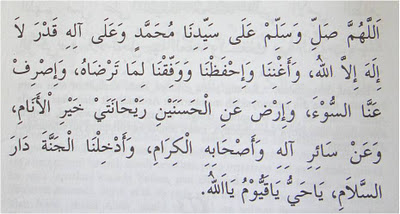 اَللَّهُمَّ صَلِّ وَسَلِّمْ عَلَى سَيِّدِنَا مُحَمَّدٍ وَعَلَى آلِهِ قَدْرَ لاَ
إِلَهَ إِلاَّ اللهُ، وَأَغْنِنَا وَاِحْفَظْنَا وَوَفِّقْنَا لِمَا تَرْضَاهُ، وَاِصْرِفْ
عَنَّا السُّوْءَ، وَاِرْضَ عَنِ الْحَسَنَيْنِ رَيْحَانَتَيْ خَيْرِ اْلأَنَامِ،
وَعَنْ سَائِرِ آلِهِ وَأَصْحَابِهِ الْكِرَامِ، وَأَدْخِلْنَا الْجَنَّةَ دَارَ
السَّلاَمِ، يَاحَيُّ يَاقَيُّوْمُ يَااَللهُ.